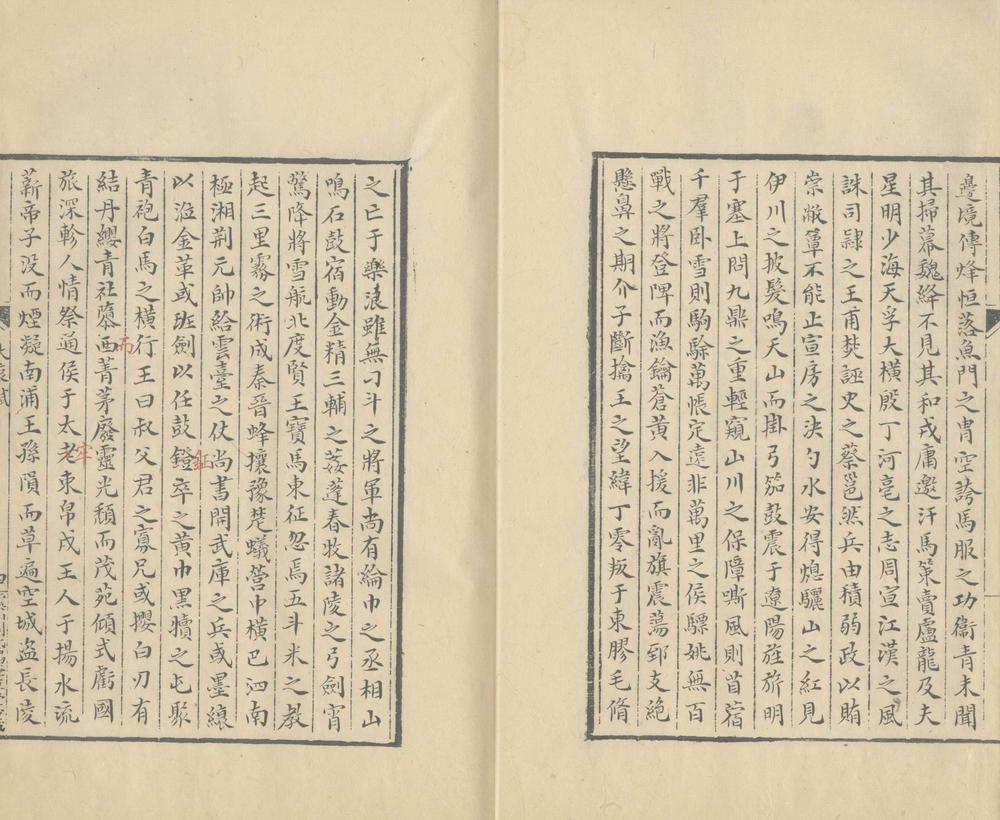 邊境傳烽恒落魚門之胄空誇馬服之功衞青未聞
其掃幕魏絳不見其和戎庸邀汗馬策賣盧龍及夫
星明少海天孚大橫殷丁河亳之志周宣江漢之風
誅司隸之王甫焚誣史之蔡邕然兵由積弱政以賄
崇敝簟不能止宣房之決勺水安得熄驪山之紅見
伊川之披髮鳴天山而掛弓笳鼓震于遼陽旌旂明
于塞上問九鼎之重輕窺山川之保障嘶風則苜蓿
千羣卧雪則駒駼萬帳定遠非萬里之侯驃姚無百
戰之將登陴而漁鑰蒼黃入援而亂旗震蕩郅支絕
懸鼻之期介子斷擒王之望緯丁零叛于東膠毛脩
之亡于樂浪雖無刁斗之將軍尚有綸巾之丞相山
鳴石鼓宿動金精三輔之菱蓬春牧諸陵之弓劍宵
驚降將雪航北度賢王寶馬東征忽焉五斗米之教
起三里霧之術成秦晉蜂攘豫楚蟻營巾橫巴泗南
極湘荆元帥給雲臺之仗尚書開武庫之兵或墨縗
以涖金革或班劍以任鼓鐙卒之黃巾黑犢之屯聚
鉦
青袍白馬之橫行王曰叔父君之寡兄或攖白刃有
結丹纓青社隳西菁茅廢靈光頹而茂苑傾式虧國
而
旅深軫人情祭通侯于太老束帛戍王人于揚水流
牢
薪帝子没而煙凝南浦王孫隕而草遍空城盜長陵
大哀賦